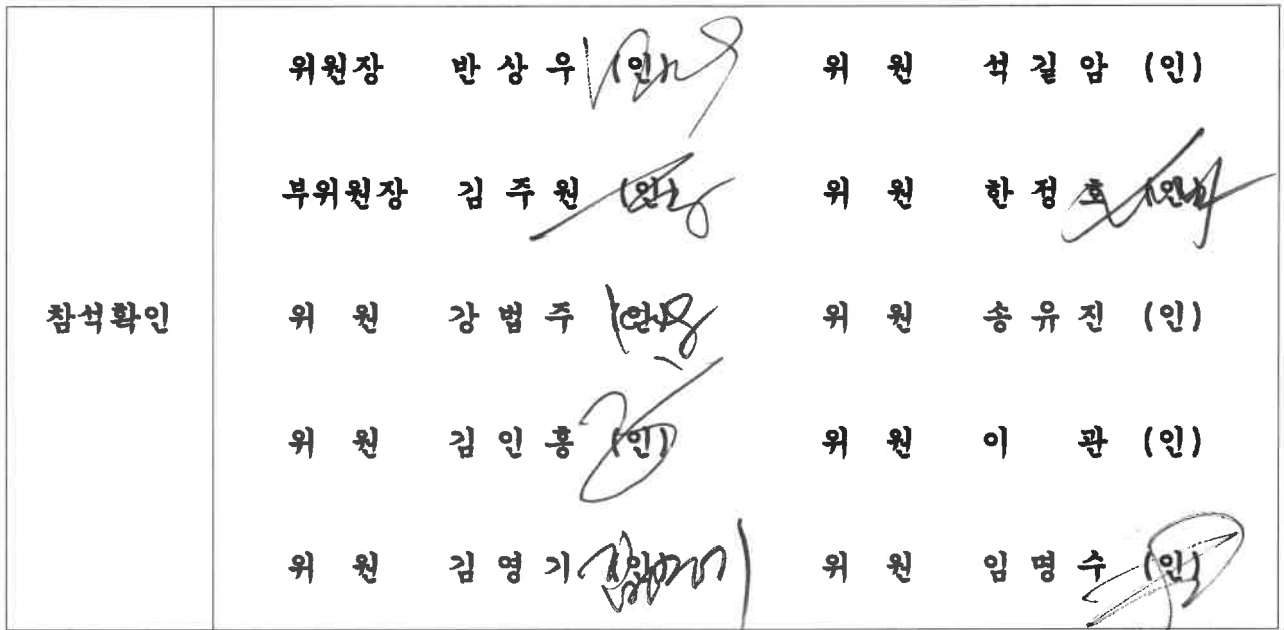 위원장 반상우 (인) 위 원 석길암 (인)
부위원장 김주원 (인) 위 원 한정호 (인)
참석확인 위 원 강법주 (인) 위 원 송유진 (인)
위 원 김인홍 (인) 위 원 이 관 (인)
위 원 김영기 (인) 위 원 임명수 (인)